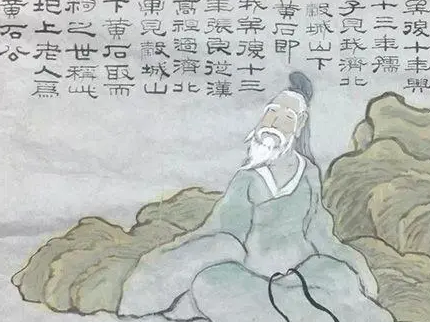 矣後十年興
十三年孺
子見我濟北
穀城山下
黃石即
我矣後十三
年張良從漢
高祖過濟北
果見穀城山
下黃石取而
祠之世稱此
圯上老人爲
黃石公